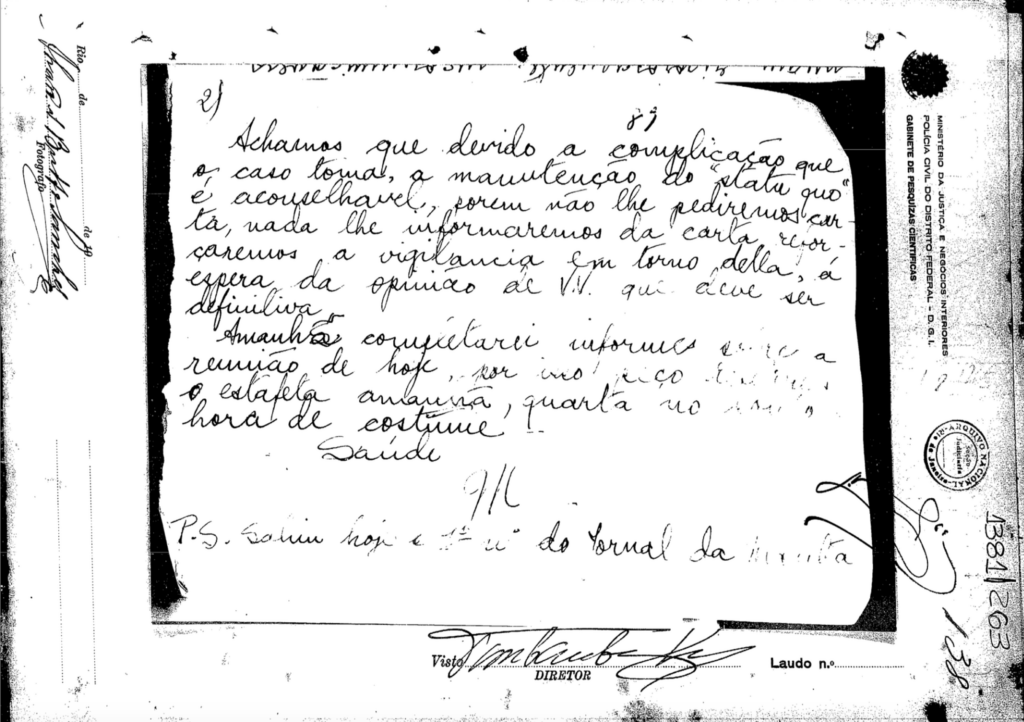 2)
89
Achamos que devido a complicação que
o caso toma, a manutenção do "statu quo"
é aconselhavel, porem não lhe pediremos car-
ta, nada lhe informaremos da carta refor-
çaremos a vigilancia em torno della, á
espera da opinião de V.V. que deve ser
definitiva.
Amanhã completarei informes sobre a
reunião de hoje, por isso peço
o estafeta amanhã, quarta no
hora de costume
Saúde
M
P.S. Sahiu hoje o 1º nº do Jornal da
Visto
DIRETOR
Laudo n.º
Rio, de de 19
Fotografo
MINISTÉRIO DA JUSTIÇA E NEGÓCIOS INTERIORES
POLÍCIA CIVIL DO DISTRITO FEDERAL - D. G. I.
GABINETE DE PESQUIZAS CIENTIFICAS
ARQUIVO NACIONAL
Secção
Judiciaria
Rio de Janeiro
138
1381/263